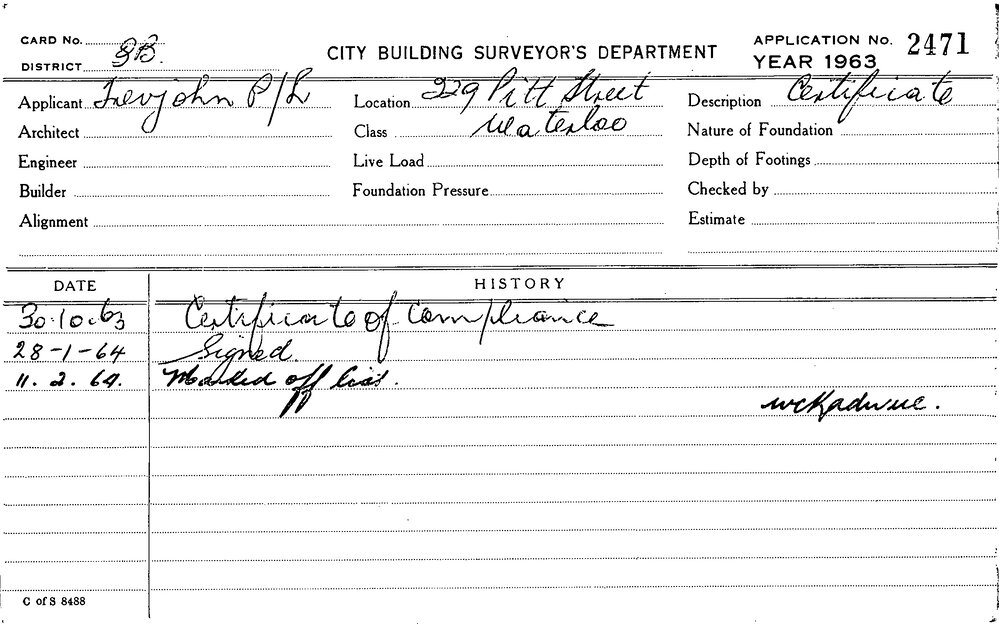 CARD No.
8B.
DISTRICT
CITY BUILDING SURVEYOR'S DEPARTMENT
APPLICATION No. 2471
YEAR 1963
Applicant Trevjohn P/L
Location 229 Pitt Street
Description Certificate
Architect
Class Waterloo
Nature of Foundation
Engineer
Live Load
Depth of Footings
Builder
Foundation Pressure
Checked by
Alignment
Estimate
DATE
HISTORY
30.10.63 Certificate of Compliance
28-1-64 Signed.
11. 2. 64. Marked off list.
C of S 8488